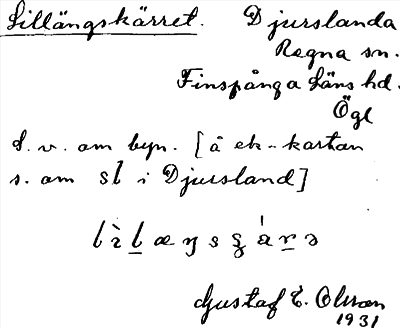 Lillängskärret. Djurslanda
Regna sn.
Finspånga läns hd.
Ögl
S. v. om byn. [å ek-kartan
s. om sl i Djursland]
Gustaf E. Olsson
1931